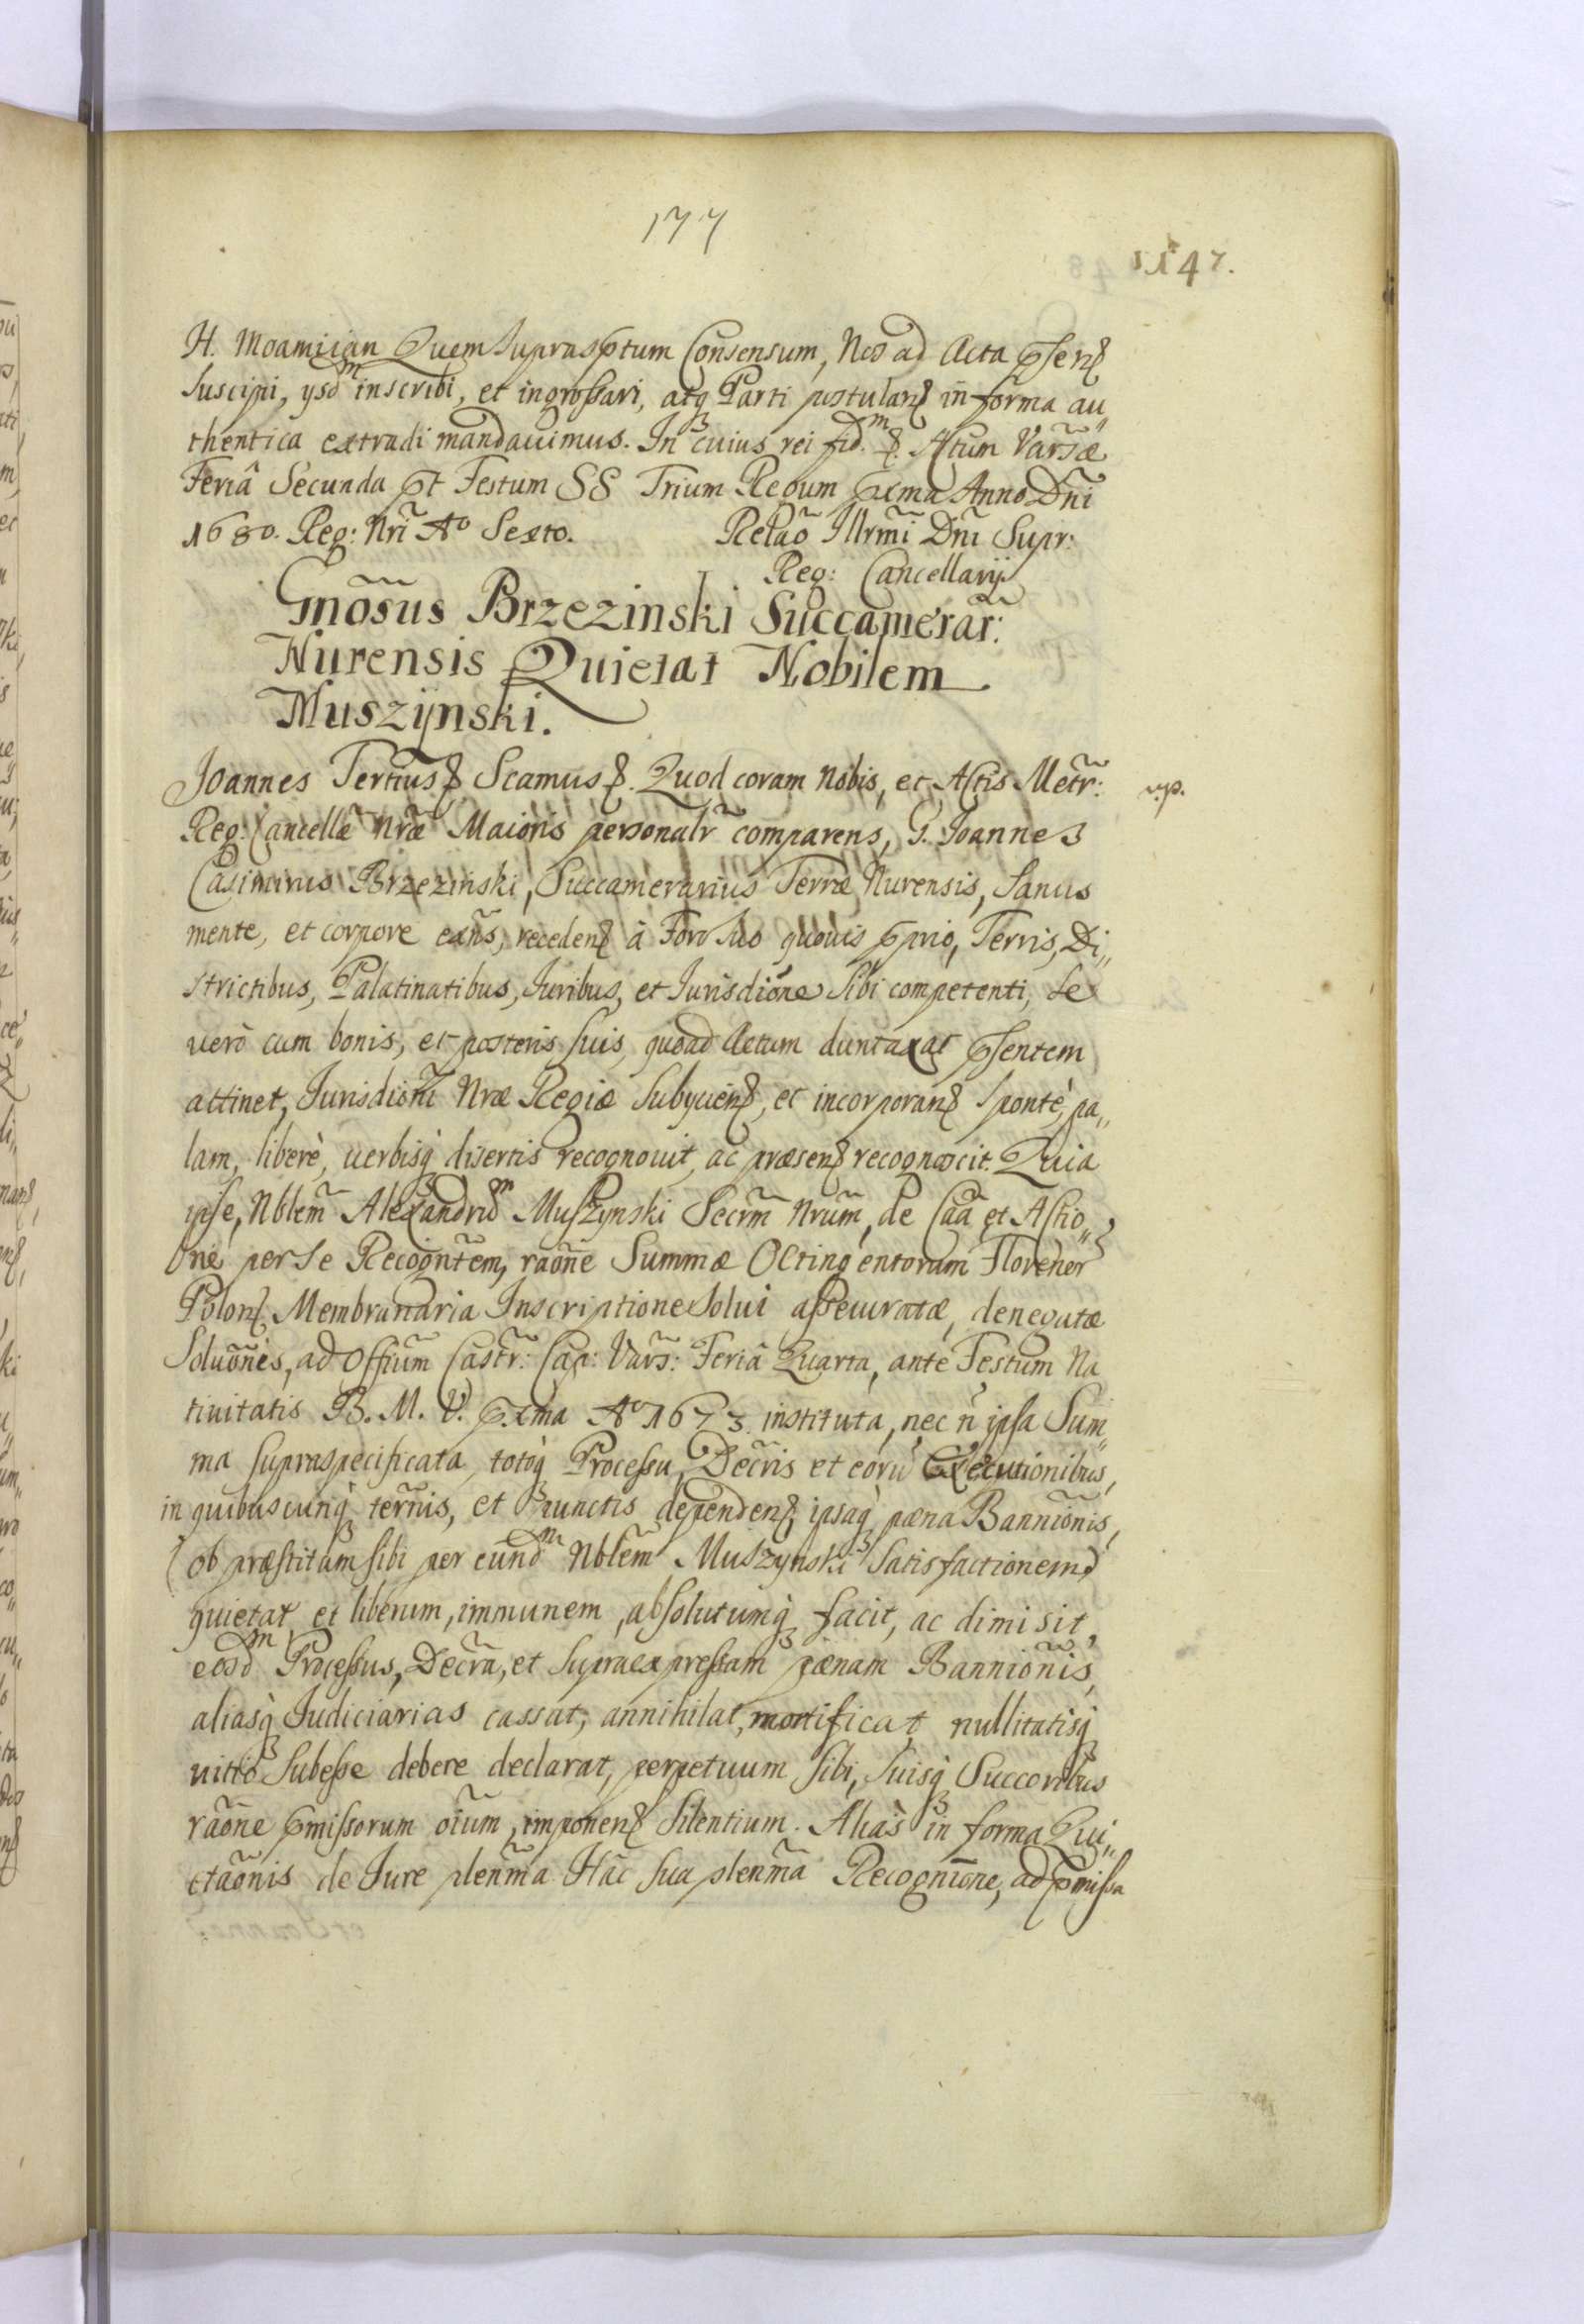 177
1147.
H. Moamijan Quem suprasptum Consensum, Nos ad Acta psenẜ
suscipi, ysdm inscribi, et ingrossari, atq Parti postulanẜ in forma au„
thentica extradi mandavimus. In cuius rei fidm. ẜ. Actum Varsæ
Feriâ Secunda pt Festum SS Trium Regum pxma Anno Dñi
1680. Reg: Nri Aº Sexto. Relaõ Illrmi Dni Supr:
Reg: Cancellarij
Gnõsus Brzezinski Succamerar̃:
Nurensis Quietat Nobilem
Muszijnski.
Joannes Tertius ẜ Scamus ẜ. Quod coram Nobis, et Actis Metr̃: np.
Reg: Cancellæ Nræ Maioris personalr̃ comparens, G. Joannes
Casimirus Brzezinski, Succamerarius Terræ Nurensis, Sanus
mente, et corpore exñs, recedenẜ à Foro suo quovis pprio, Terris, Di„
strictibus, Palatinatibus, Juribus, et Jurisdiõne Sibi competenti, Se
verò cum bonis, et posteris suis, quoad Actum duntaxat psentem
attinet, Jurisdiõni Nræ Regiæ Subijcienẜ, et incorporanẜ sponte, pa„
lam, liberè, verbisq̀ disertis recognovit, ac præsenẜ recognoscit. Quia
ipse, Nblem̃ Alexandrum Muszynski Secrm̃ Nrum̃, de Caã et Actio„
one per se Recogntem, raõne Summæ Octingentorum Florenor
Polonẜ Membranaria Inscriptione solui assecuratæ, denegatæ
Soluõnes, ad Offium Castr̃: Cap: Vars̃: Feriâ Quarta, ante Festum Na
tiuitatis B. M. V. pxma Aº 1673. instituta, nec ñ ipsa Sum„
ma supraspecificata, totoq̀ Processu, Decr̃is et eorũ Executionibus,
in quibuscunq̀ ter̃nis, et punctis dependenẜ, ipsaq̀ pæna Banniõnis,
(ob præstitam sibi per eundm Nblem̃ Muszynski satisfactionem)
quietat, et liberum, immunem, absolutumq̀ facit, ac dimisit,
eosdm Processus, Decr̃a, et supraexpressam pænam Banniõnis,
aliasq̀ Judiciarias cassat, annihilat, mortificat, nullitatisq̀
uitio Subesse debere declarat, perpetuum sibi, suisq̀ Succoribus
raõne pmissorum oĩum, imponenẜ Silentium. Aliàs in forma Qui„
etaõnis de Jure plenm̃a Hac sua plenm̃a Recogniõne, ad pmissa